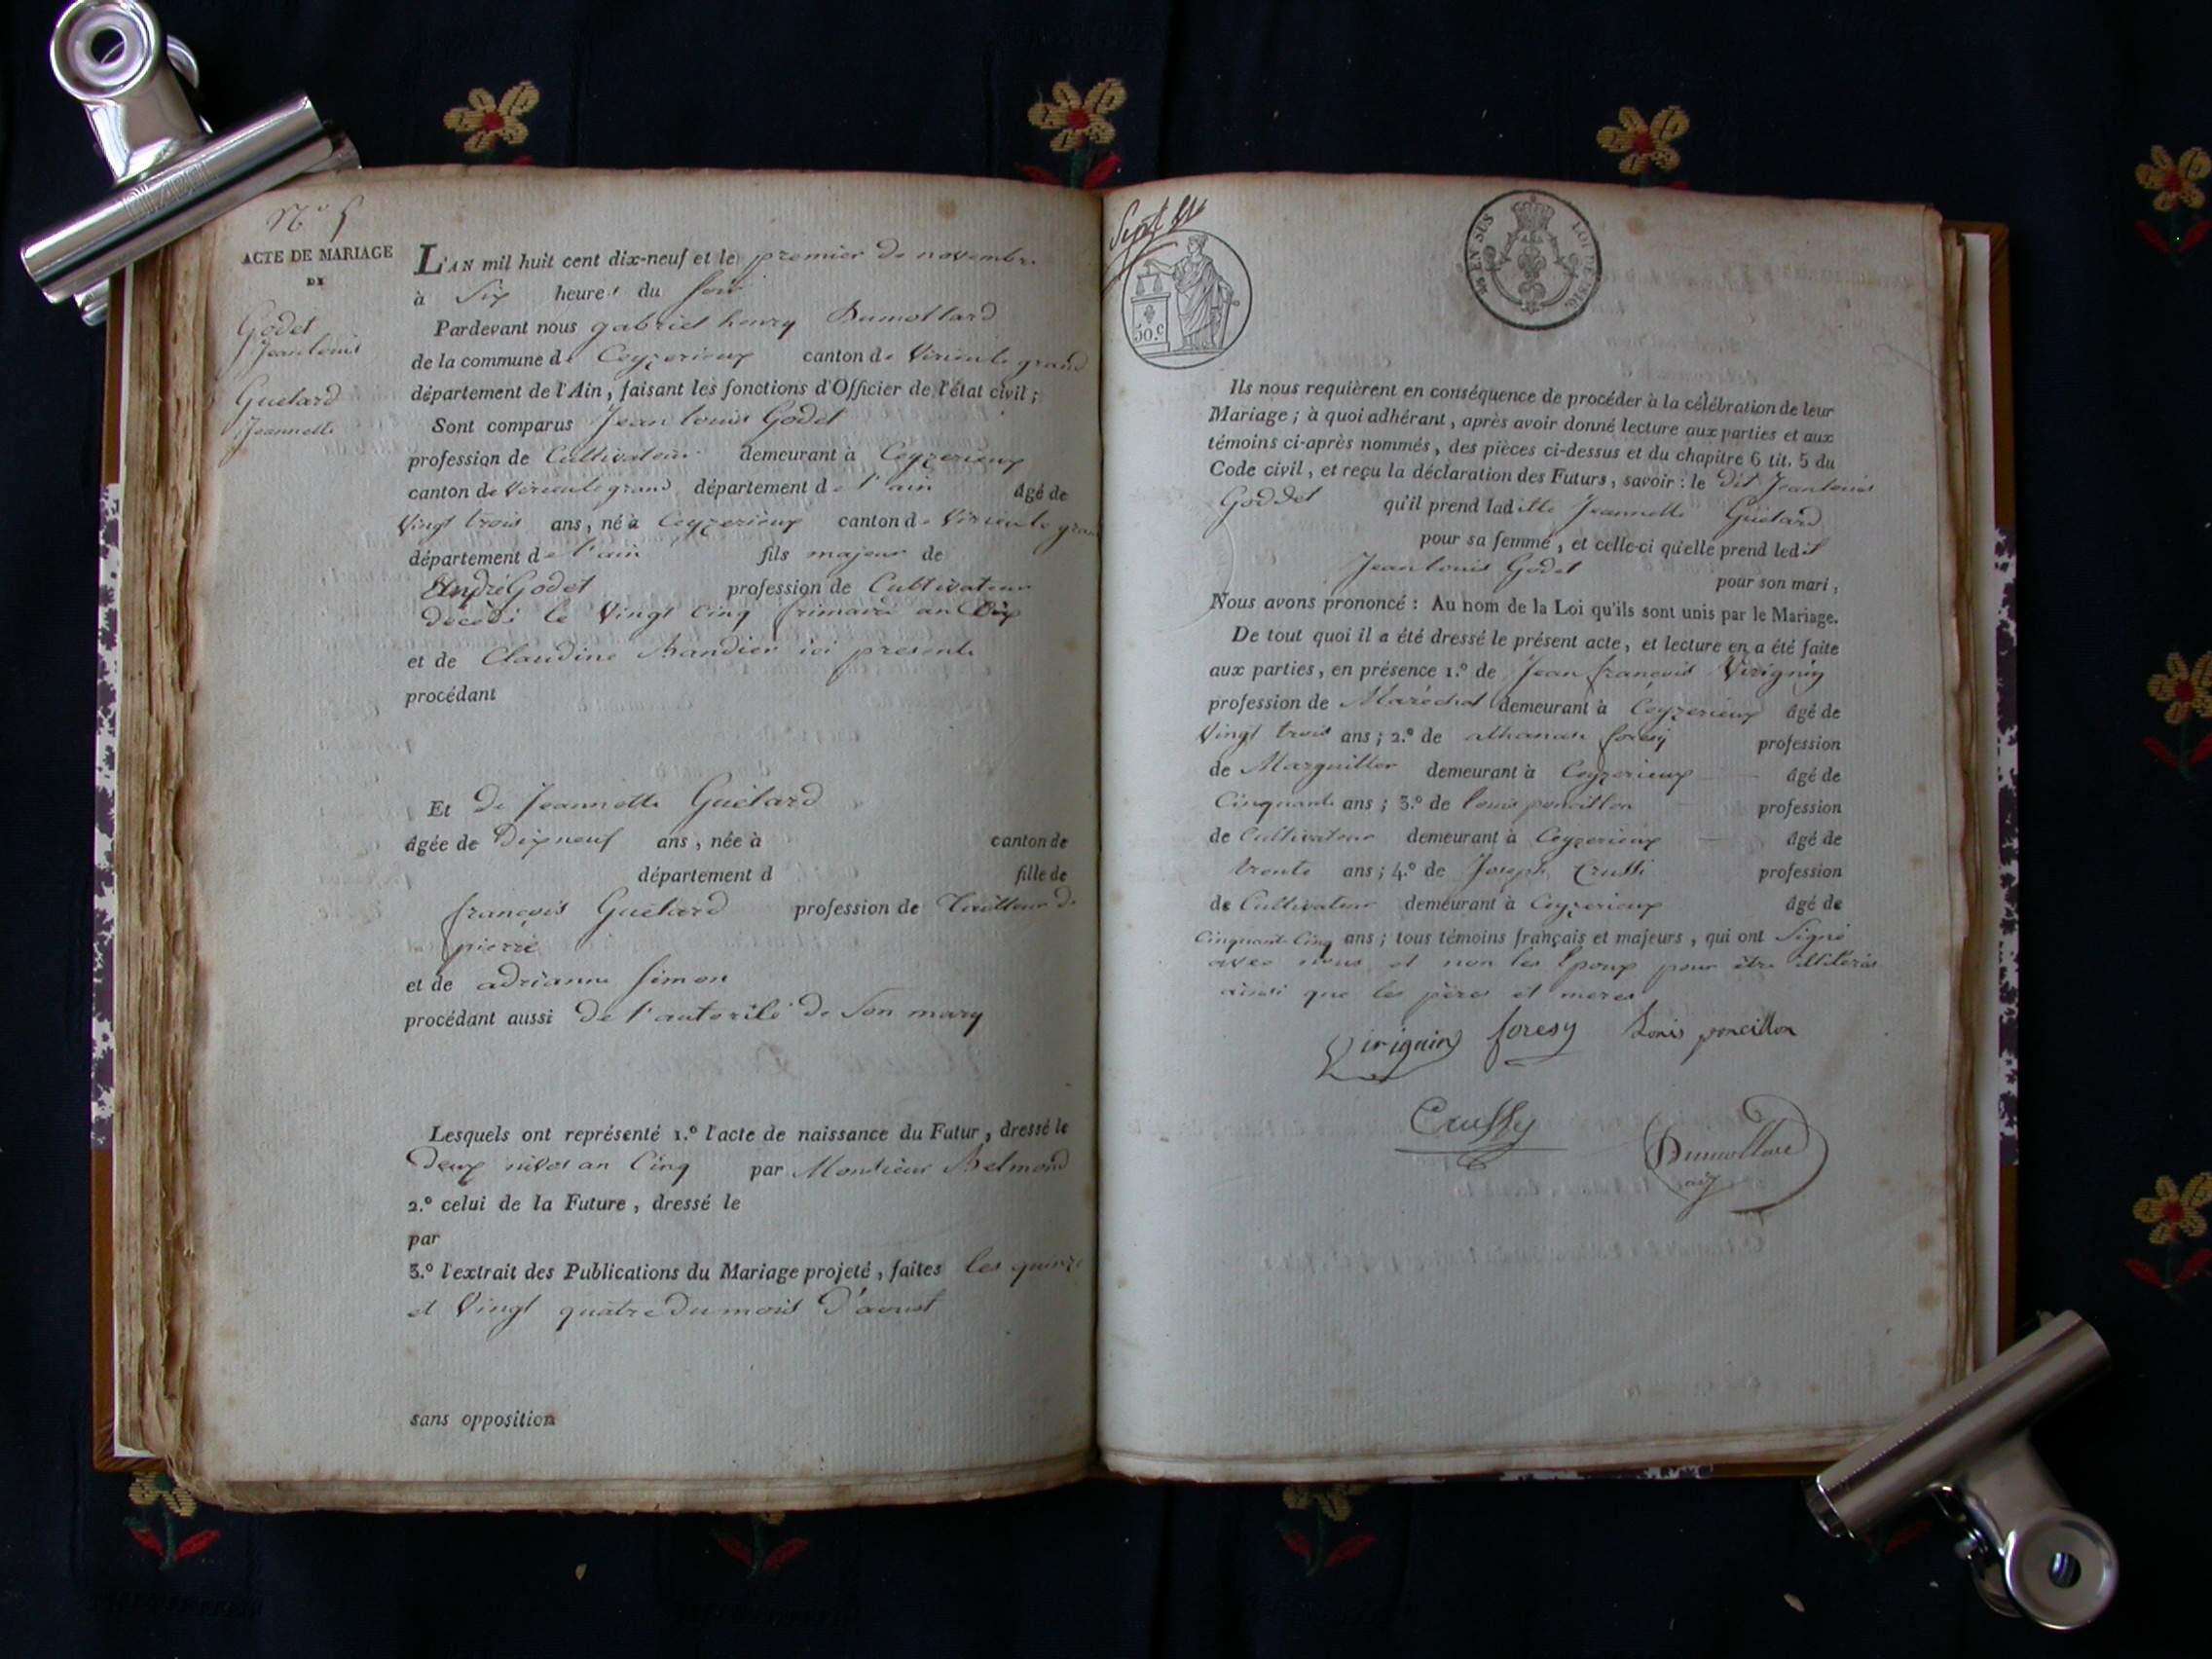 N° 5
ACTE DE MARIAGE
DE
Godet
Jean louis
Guétard
Jeannette
L'AN mil huit cent dix-neuf et le premier de novembre
à Six heures du soir
Pardevant nous gabriel henry Dumollard
de la commune de Ceyzerieux canton de Virieu le grand
département de l'Ain, faisant les fonctions d'Officier de l'état civil ;
Sont comparus Jean louis Godet
profession de Cultivateur demeurant à Ceyzerieux
canton de Virieu le grand département de l'ain âgé de
Vingt trois ans, né à Ceyzerieux canton de Virieu le grand
département de l'ain fils majeur de
André Godet profession de Cultivateur
décédé le Vingt Cinq frimaire an Dix
et de Claudine Bandier ici presente
procédant
Et de Jeannette Guétard
âgée de Dix neuf ans, née à canton de
département d fille de
francois Guétard profession de Tailleur de
pierre
et de adrianne Simon
procédant aussi de l'autorité de Son mary
Lesquels ont représenté 1.° l'acte de naissance du Futur, dressé le
Deux nivos an Cinq par Monsieur Belmond
2.° celui de la Future, dressé le
par
3.° l'extrait des Publications du Mariage projeté, faites les quinze
et Vingt quatre du mois d'aoust
sans opposition
50.c
EN SUS
LOI DE 1816
Ils nous requièrent en conséquence de procéder à la célébration de leur
Mariage ; à quoi adhérant, après avoir donné lecture aux parties et aux
témoins ci-après nommés, des pièces ci-dessus et du chapitre 6 tit. 5 du
Code civil, et reçu la déclaration des Futurs, savoir : le dit Jean louis
Goddet qu'il prend laditte Jeannette Guétard
pour sa femme, et celle-ci qu'elle prend ledit
Jean louis Godet pour son mari,
Nous avons prononcé : Au nom de la Loi qu'ils sont unis par le Mariage.
De tout quoi il a été dressé le présent acte, et lecture en a été faite
aux parties, en présence 1.° de Jean francois Virignin
profession de Maréchal demeurant à Ceyzerieux âgé de
Vingt trois ans ; 2.° de athanase foresy profession
de Marguiller demeurant à Ceyzerieux âgé de
Cinquante ans ; 3.° de louis poncillon profession
de Cultivateur demeurant à Ceyzerieux âgé de
trente ans ; 4.° de Joseph Crussi profession
de Cultivateur demeurant à Ceyzerieux âgé de
Cinquante Cinq ans ; tous témoins français et majeurs, qui ont Signé
avec nous et non les Epoux pour être illitérés
ainsi que les pères et meres
Virignin foresy Louis poncillon
Crussy
Dumollard